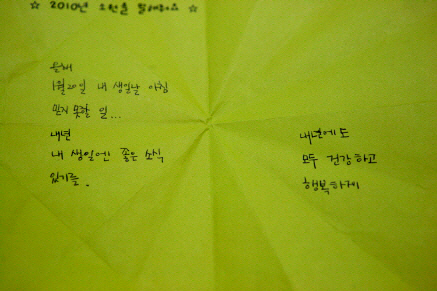 ☆ 2010년 소원을 말해줘요 ☆
올해
1월 20일 내 생일날 아침
믿지 못할 일...
내년
내 생일엔 좋은 소식
있기를.
내년에도
모두 건강하고
행복하게